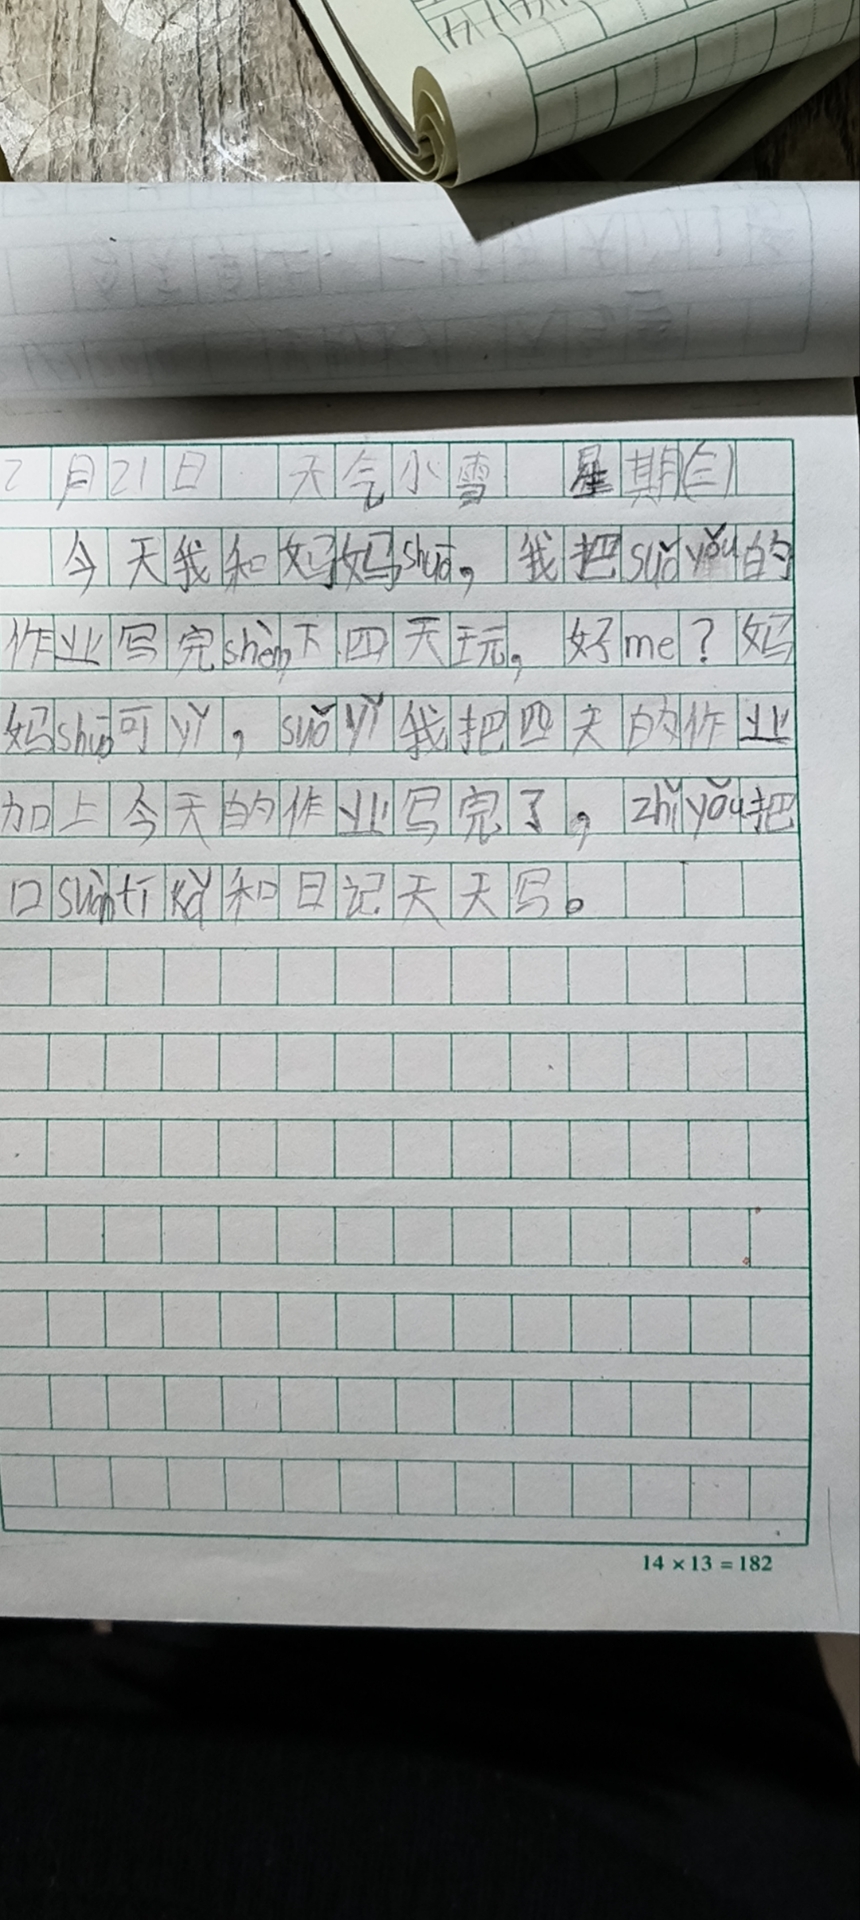 2月21日 天气小雪 星期(三)
今天我和妈妈shuō，我把suǒyǒu的
作业写完shèng下四天玩，好me？妈
妈shuō可yǐ，suǒyǐ我把四天的作业
加上今天的作业写完了，zhǐyǒu把
口suàntí kǎ和日记天天写。
14×13=182